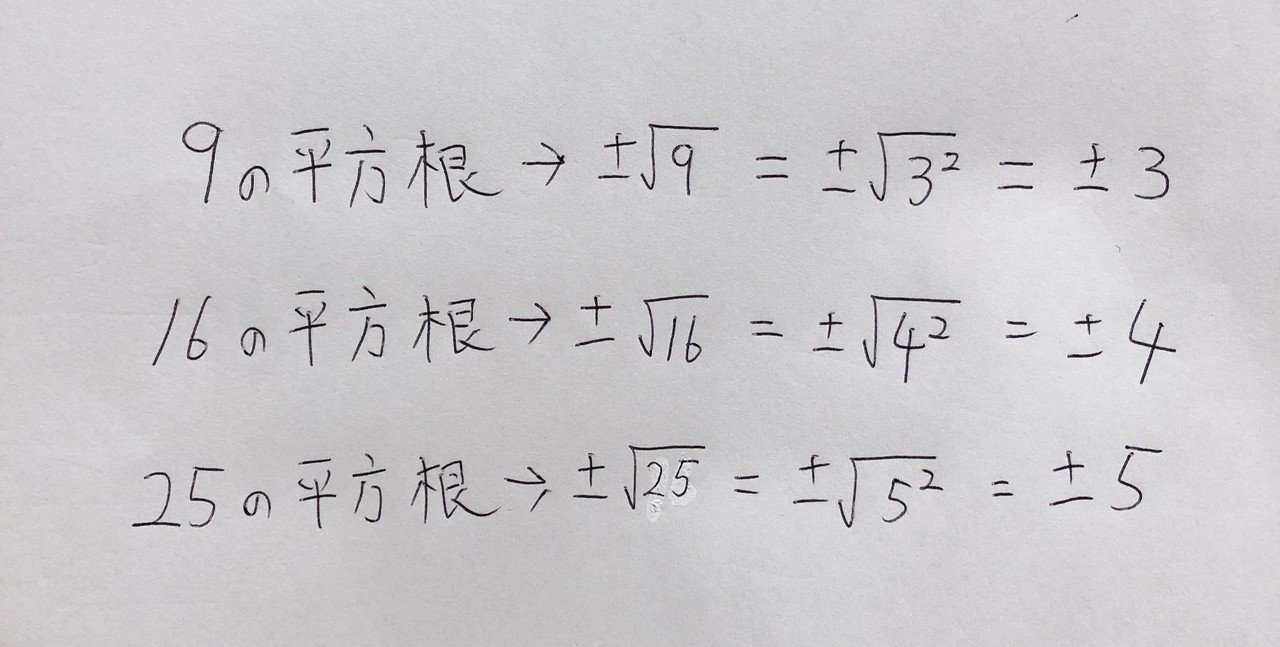 9の平方根→±√9 = ±√3² = ±3
16の平方根→±√16 = ±√4² = ±4
25の平方根→±√25 = ±√5² = ±5